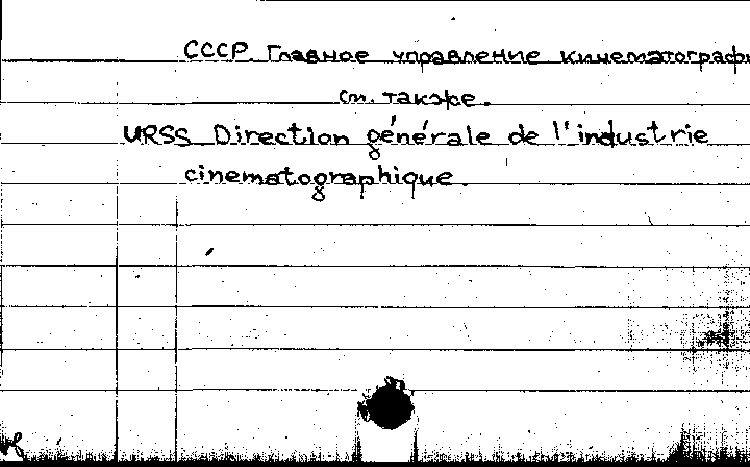 СССР. Главное управление кинематографи
см. также.
URSS Direction générale de l'industrie
cinematographique.